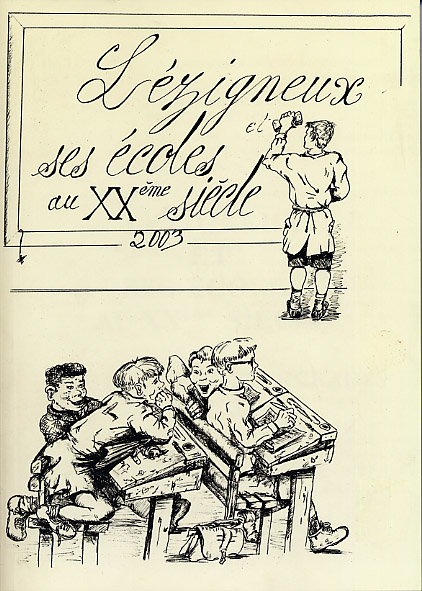 Lézigneux
et
ses écoles
au XXème siècle
2003